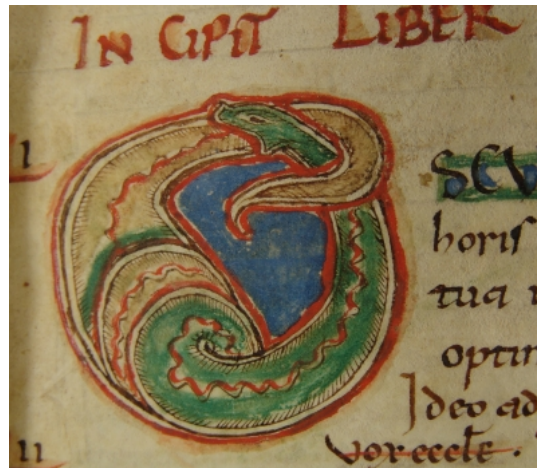 IN CIPIT LIBER
I
OSCV
horis
tua
optim
Ideo ad
II
vox eccl̄e ·